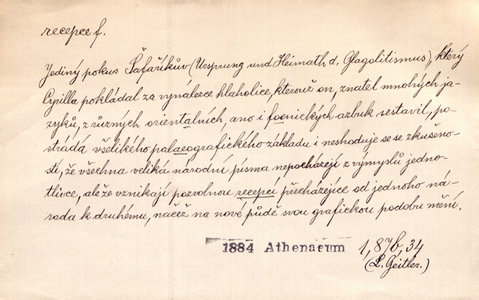 recepce f.
Jediný pokus Šafaříkův (Ursprung und Heimath d. Glagolitismus), který
Cyrilla pokládal za vynalezce hlaholice, kterouž on, znatel mnohých ja-
zyků, z různých orientalních, ano i foenických azbuk sestavil, po-
strádá všelikého palaeografického základu i neshoduje se se zkušeno-
stí, že všechna veliká národní písma nepocházejí z výmyslů jednot-
livce, ale že vznikají pozvolnou recepcí přecházejíce od jednoho ná-
roda k druhému, načež na nové půdě svou grafickou podobu mění.
1884 Athenaeum 1, 876, 34
(L. Geitler.)